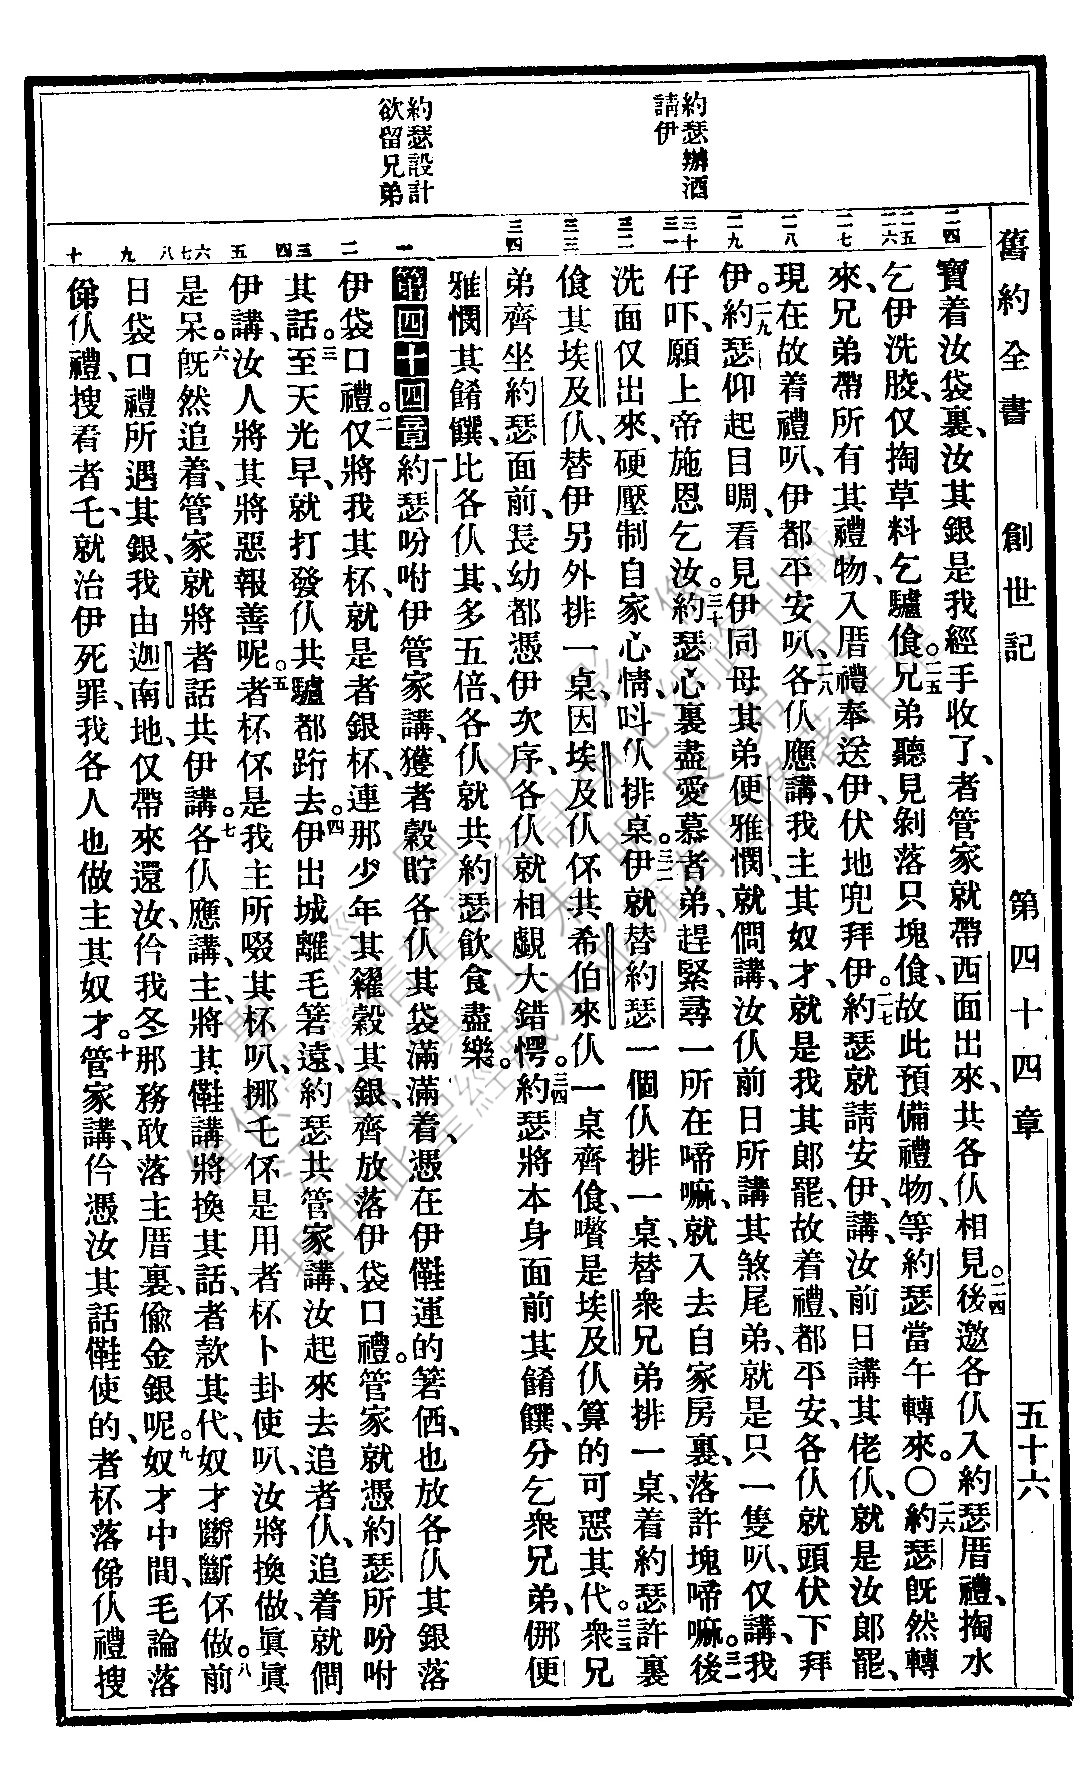 舊約全書 創世記 第四十四章 五十六
約瑟辦酒
請伊
約瑟設計
欲留兄弟
寶着汝袋裏、汝其銀是我經手收了、者管家就帶西面出來、共各仈相見。二四後邀各仈入約瑟厝禮、掏水
乞伊洗骹、仅掏草料乞驢飧。二五兄弟聽見剝落只塊飧、故此預備禮物、等約瑟當午轉來。〇二六約瑟旣然轉
來、兄弟帶所有其禮物、入厝禮奉送伊、伏地兜拜伊。二七約瑟就請安伊、講、汝前日講其佬仈、就是汝郎罷、
現在故着禮叭、伊都平安叭、二八各仈應講、我主其奴才、就是我其郎罷、故着禮、都平安、各仈就頭伏下拜
伊。二九約瑟仰起目睭、看見伊同母其弟便雅憫、就問講、汝仈前日所講其煞尾弟、就是只一隻叭、仅講、我
仔吓、願上帝施恩乞汝。三十約瑟心裏盡愛慕者弟、趕緊尋一所在啼嘛、就入去自家房裏、落許塊啼嘛。三一後
洗面仅出來、硬壓制自家心情、呌仈排桌。三二伊就替約瑟一個仈排一桌、替衆兄弟排一桌、着約瑟許裏
飧其埃及仈、替伊另外排一桌、因埃及仈伓共希伯來仈一桌齊飧、嚽是埃及仈算的可惡其代。三三衆兄
弟齊坐約瑟面前、長幼都憑伊次序、各仈就相覷大錯愕。三四約瑟將本身面前其餚饌、分乞衆兄弟、㑚便
雅憫其餚饌、比各仈其、多五倍、各仈就共約瑟飲食盡樂。
第四十四章 一約瑟吩咐伊管家講、獲者穀貯各仈其袋滿滿着、憑在伊𫢗運的箸価、也放各仈其銀落
伊袋口禮。二仅將我其杯、就是者銀杯、連那少年其糴穀其銀、齊放落伊袋口禮。管家就憑約瑟所吩咐
其話。三至天光早、就打發仈共驢都跻去。四伊出城離毛箸遠、約瑟共管家講、汝起來去追者仈、追着就問
伊講、汝人將其將惡報善呢。五者杯伓是我主所啜其杯叭、挪乇伓是用者杯卜卦使叭、汝將換做、眞眞
是呆。六旣然追着、管家就將者話共伊講。七各仈應講、主、將其𫢗講將換其話、者款其代、奴才斷斷伓做。八前
日袋口禮所遇其銀、我由迦南地、仅帶來還汝、仱我冬那務敢落主厝裏、偸金銀呢。九奴才中間、毛論落
㑚仈禮、搜看者乇、就治伊死罪、我各人也做主其奴才。十管家講、仱憑汝其話𫢗使的、者杯落㑚仈禮搜